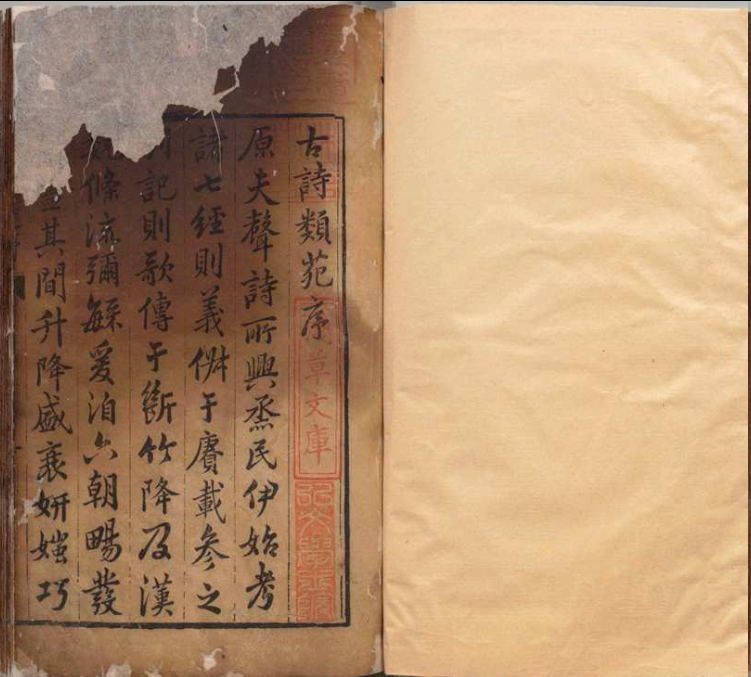 古詩類苑序
原夫聲詩所興烝民伊始考
諸七經則義備于賡載參之
記則歌傳于斷竹降及漢
條流彌緐爰洎六朝暢發
其間升降盛衰妍媸巧
草文庫